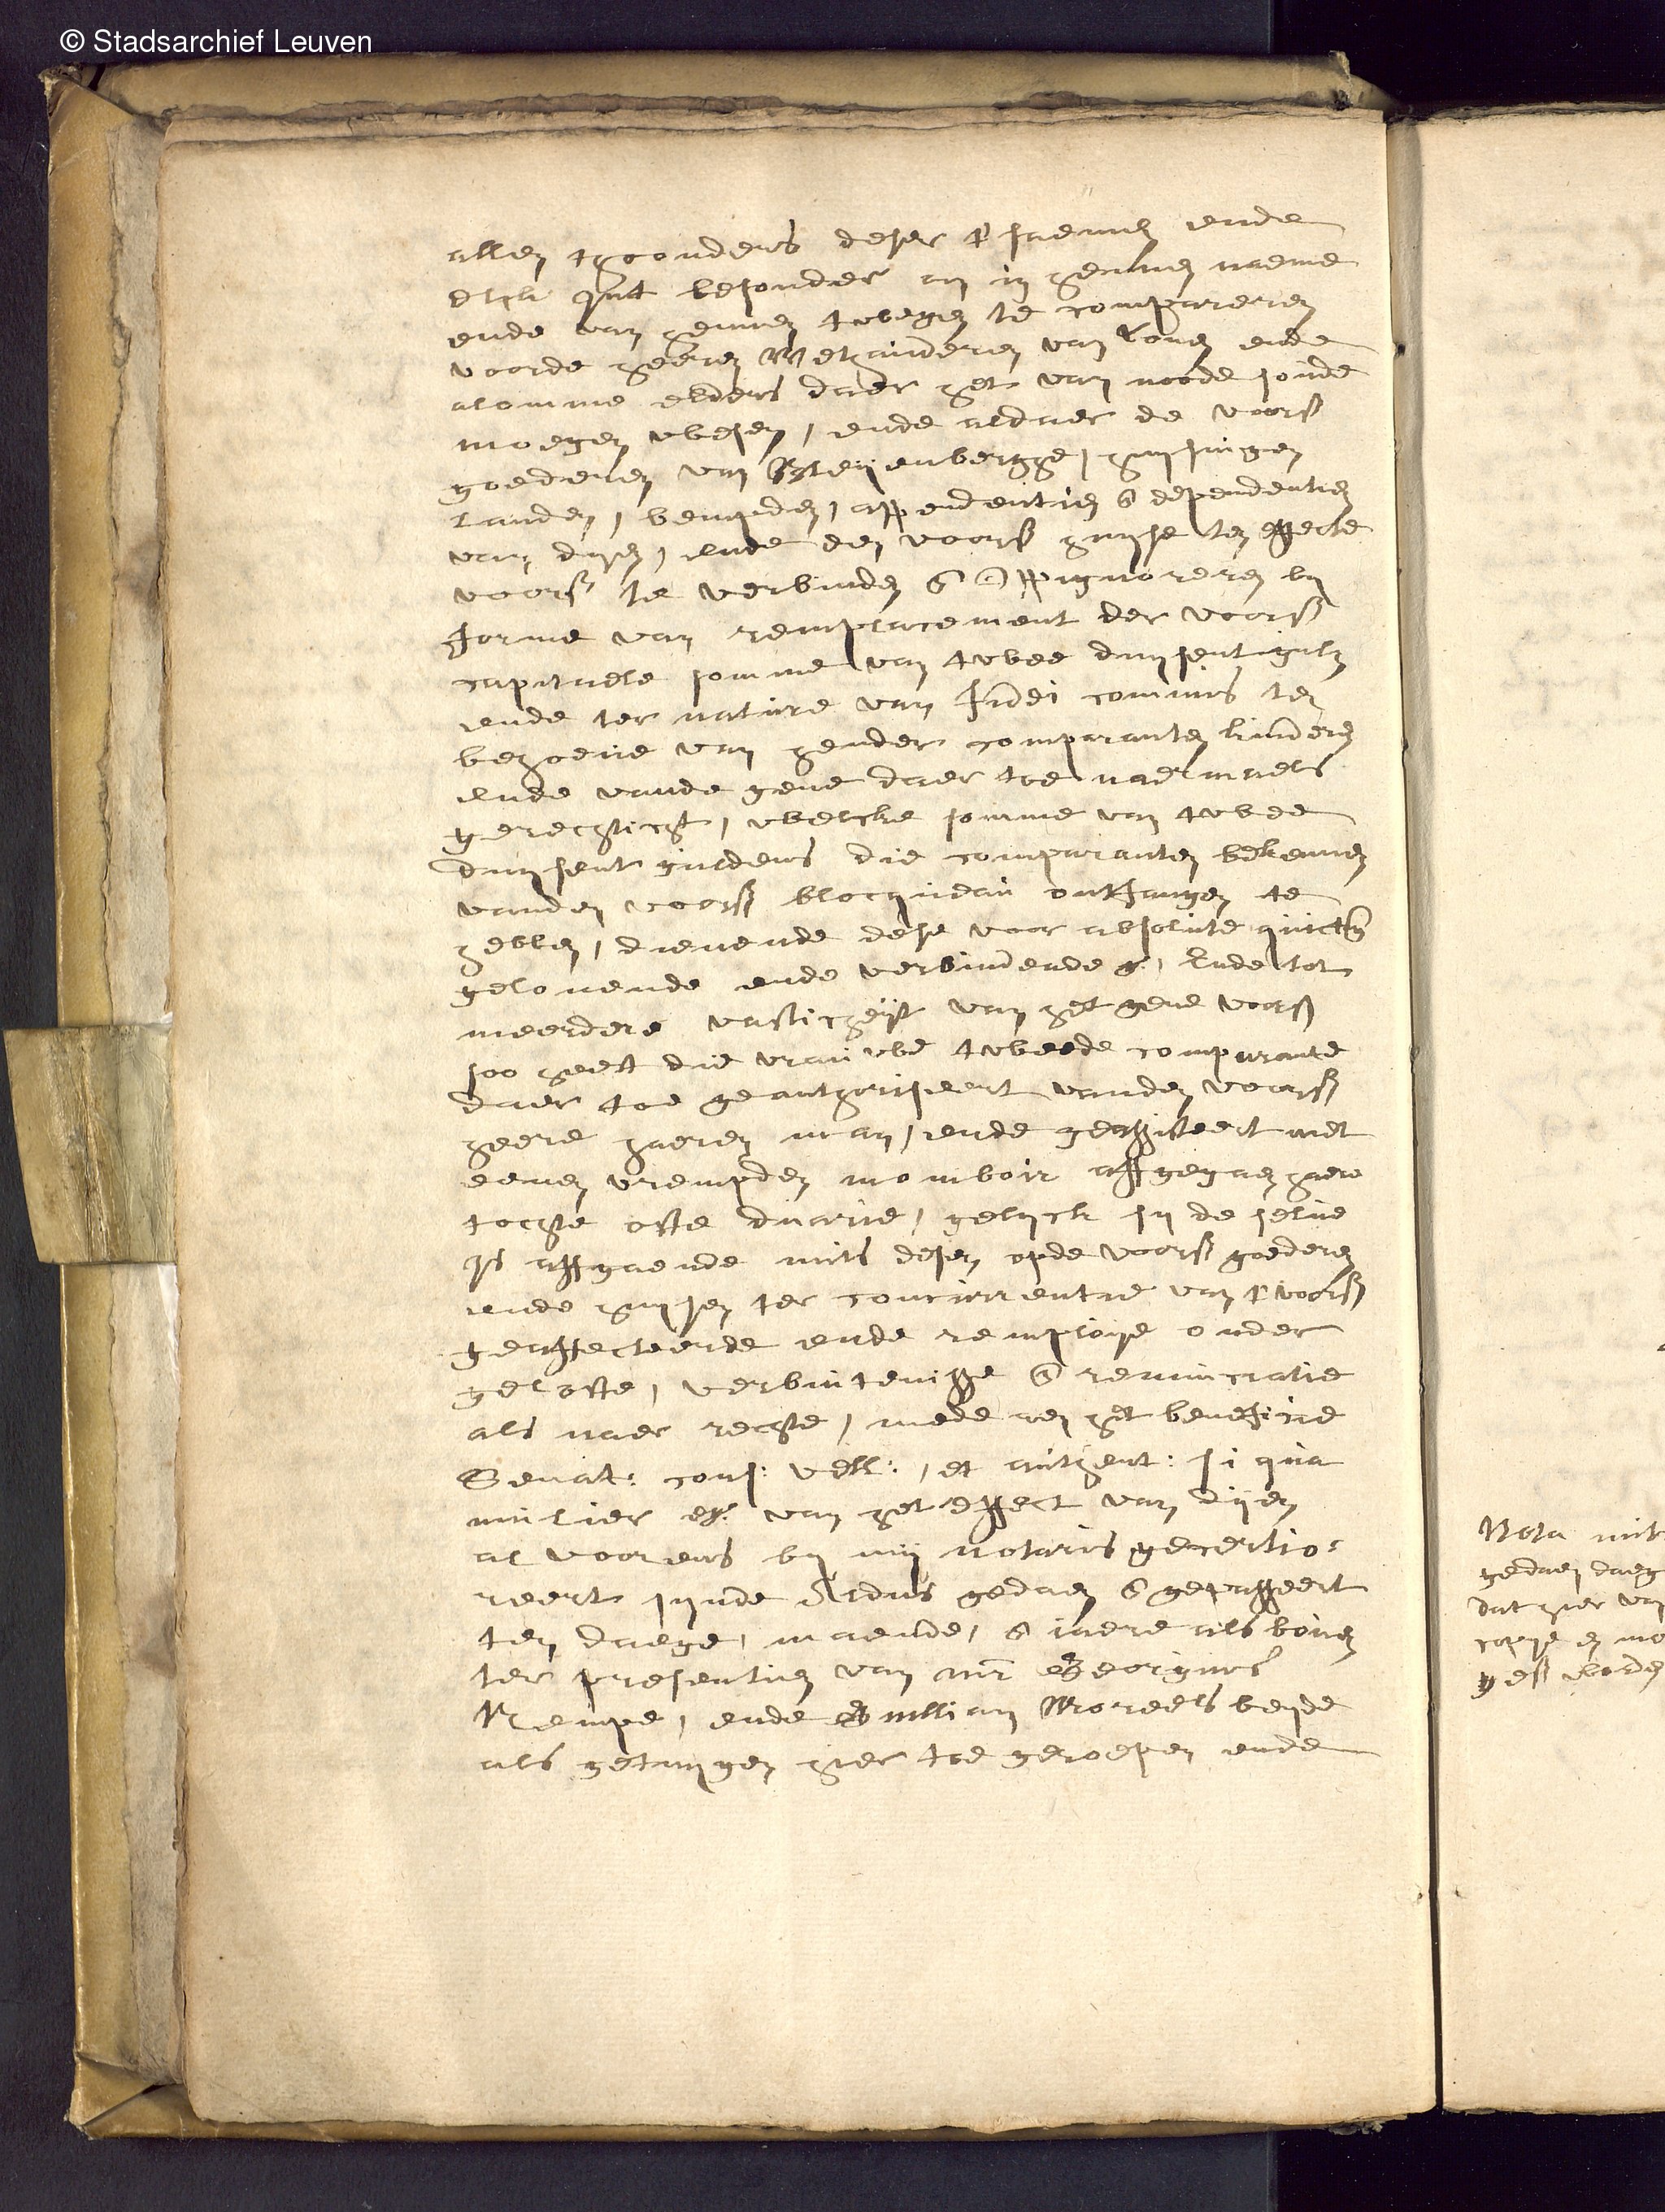 © Stadsarchief Leuven
allen thoonders deser t' saemen ende
elck int besonder om in hennen naeme
ende van hennen tweghen te compareren
voorde heeren Wethauderen van Loven ende
alomme elders daer het van noode soude
moegen wesen, ende aldaer de voors
goederen van huysingen
landen, bempden, appendentien & dependentien
van dijen, ende den voors huyse ten effecte
voors te verbinden & oppignoreren by
forme van remplacement der voors
capitaele somme van twee duysent guldens
ende ter nature van fidei commis ten
behoeve van hender comparanten kinderen
ende vande gene daer toe naermaels
gerechticht, welcke somme van twee
duysent guldens die comparanten bekennen
vanden voors blocqueau ontfangen te
hebben, dienende dese voor absolute quictan
gelovende ende verbindende &, Ende tot
meerdere vasticheyt van het gene voors
soo heeft die vrauwe tweede comparante
daer toe geauthoriseert vanden voors
heere haeren man, ende geassisteert met
eenen vrempden momboir affgegaen haere
tochte ofte duarie, gelyck sy de selve
is affgaende mits desen opde voors goederen
ende huysen ter concurrentie van t' voors
geaffecteerde ende remploye onder
geloste, verbintenisse & renunciatie
als naer rechte, mede aen het beneficie
Senat: cons: Vell:, et authent: si qua
mulier &. van het effect van dijen
al voorens by mij notaris gecertio-
reert synde Aldus gedaen & gepasseert
ten daege, maende, & jaere als boven
ter presentien van mr Georgius
Rempe, ende Guilliam Moreels beyde
als getuygen hier toe geroepen ende
Nota mit
gedaen daeg
dat hier van
copye en mo
gess worden